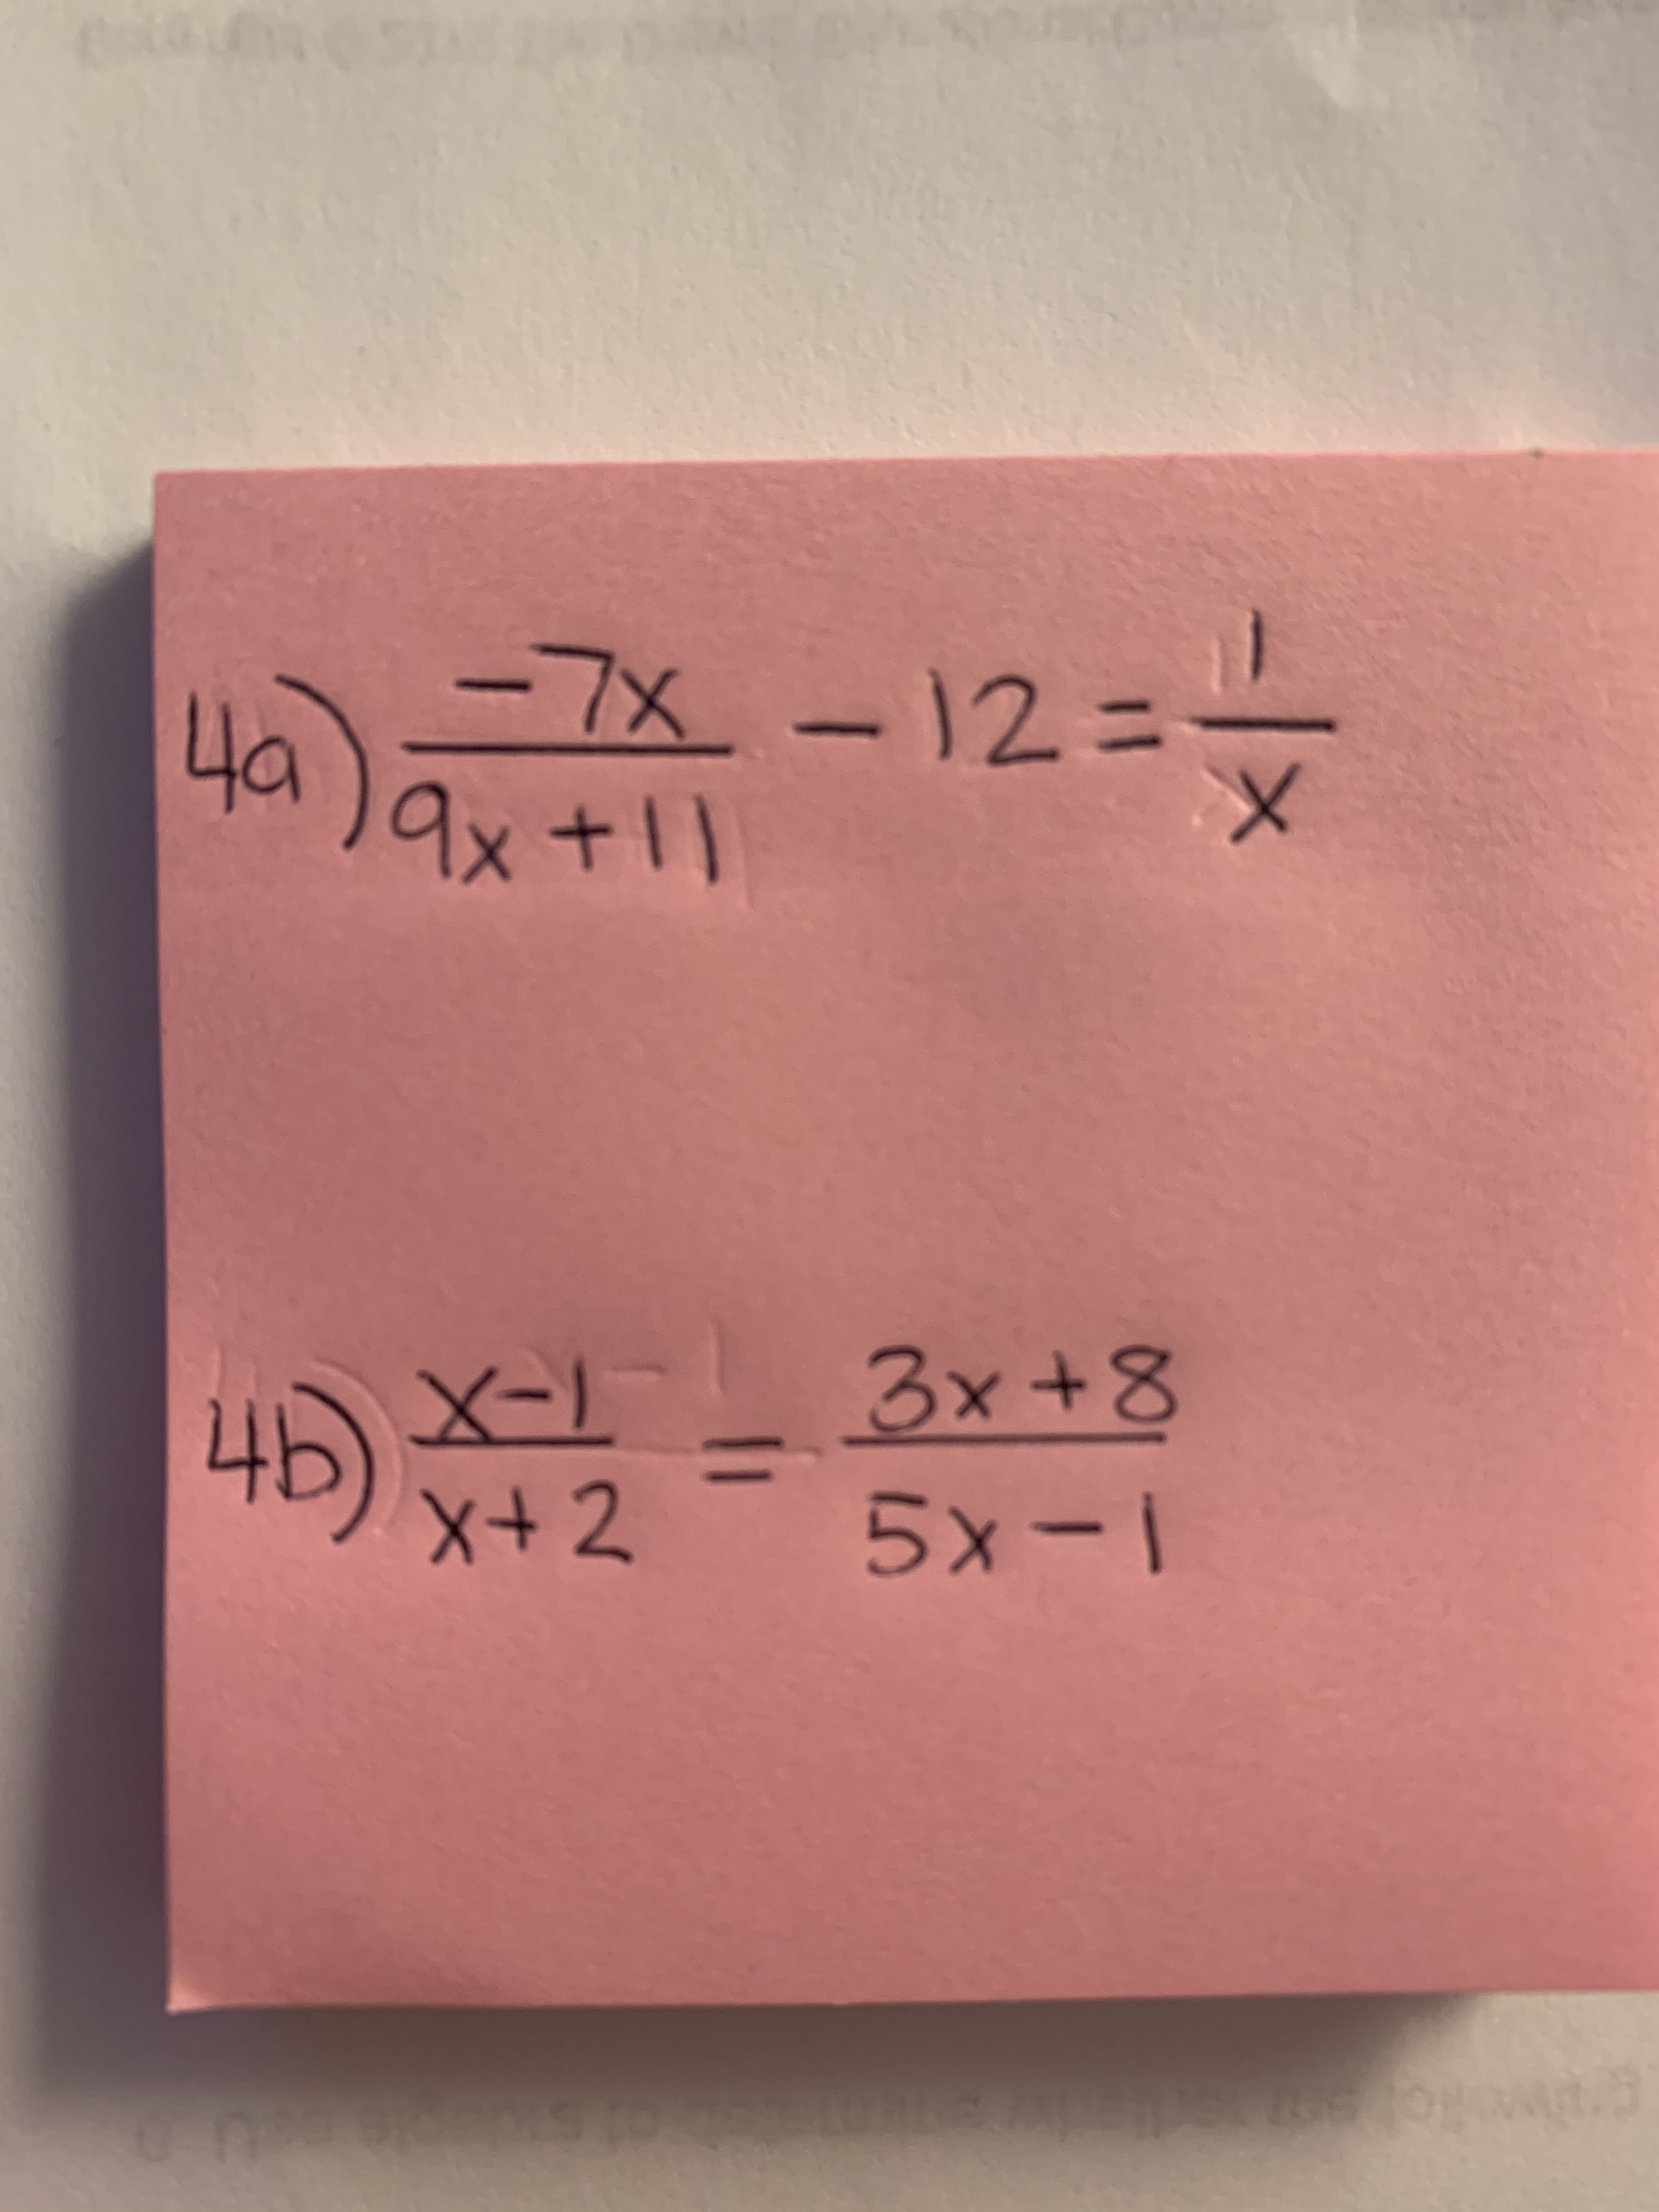 4a) -7x/(9x+11) - 12 = 1/x
4b) (x-1)/(x+2) = (3x+8)/(5x-1)